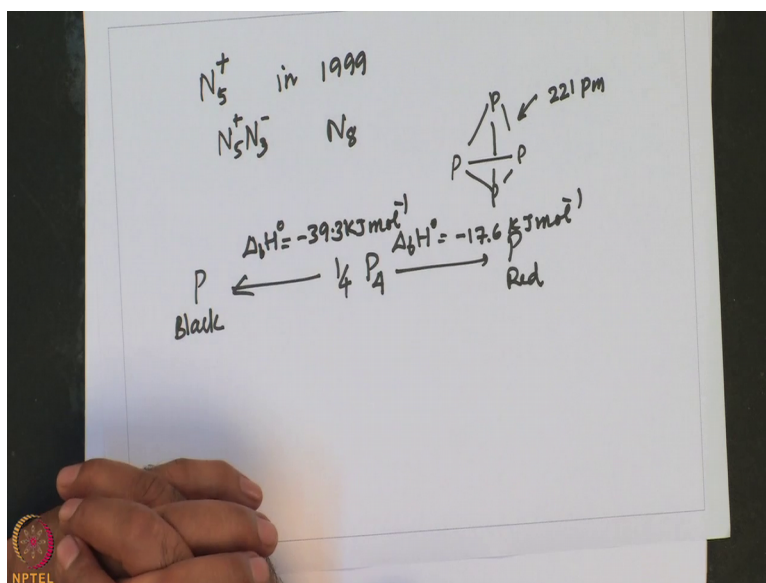 N₅⁺ in 1999
N₅⁺N₃⁻ N₈
P
221 pm
P P
P
ΔfH° = -39.3 KJ mol⁻¹ ΔfH° = -17.6 KJ mol⁻¹
P ← 1/4 P₄ → P
Black Red
NPTEL